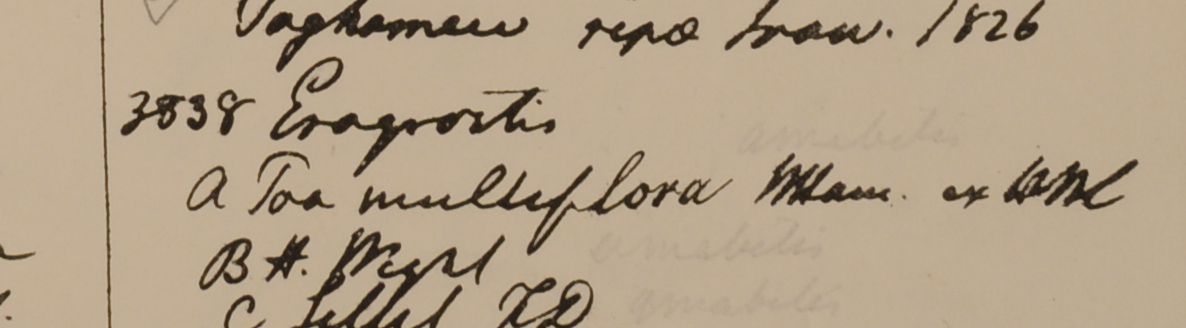 Taghamew ripa Iraw. 1826
3838 Eragrostis
A Poa multiflora Ham. ex
B H. Wight
C
amabilis
amabilis
amabilis